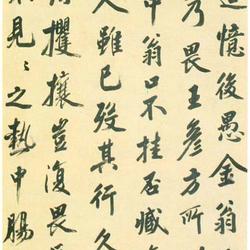 憶後愚金翁
乃畏王彥方所
中翁口不挂否臧
人雖已歿其行久
攫攘豈復畏
見〻之熱中腸